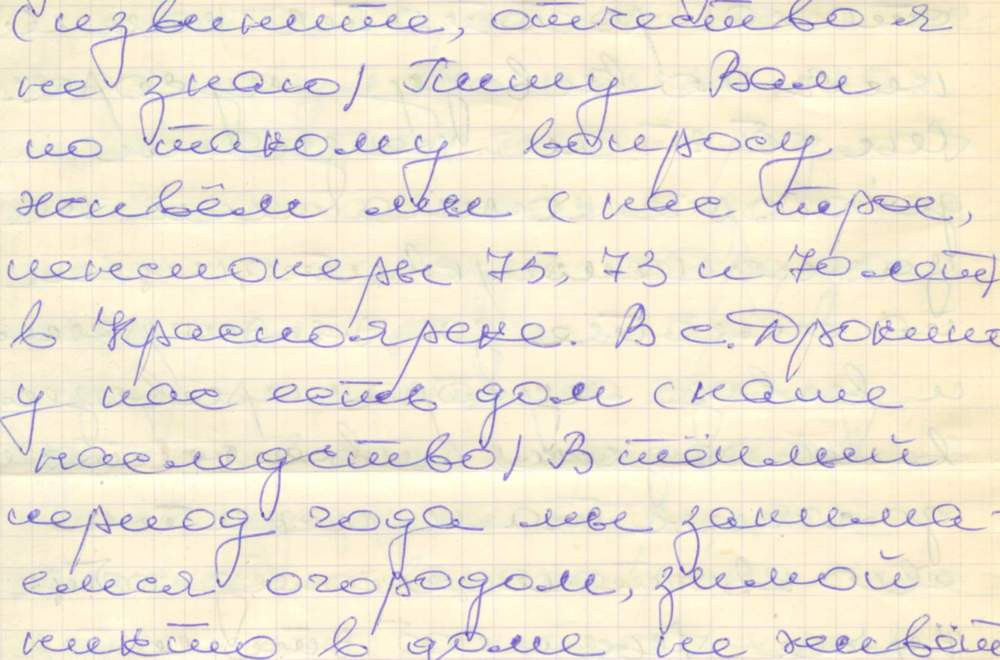 (извините, отчество я
не знаю) Пишу Вам
по такому вопросу
живём мы (нас трое,
пенсионеры 75, 73 и 70 лет)
в Красноярске. В с. Дрокино
у нас есть дом (наше
наследство) В тёплый
период года мы занима-
емся огородом, зимой
никто в доме не живёт